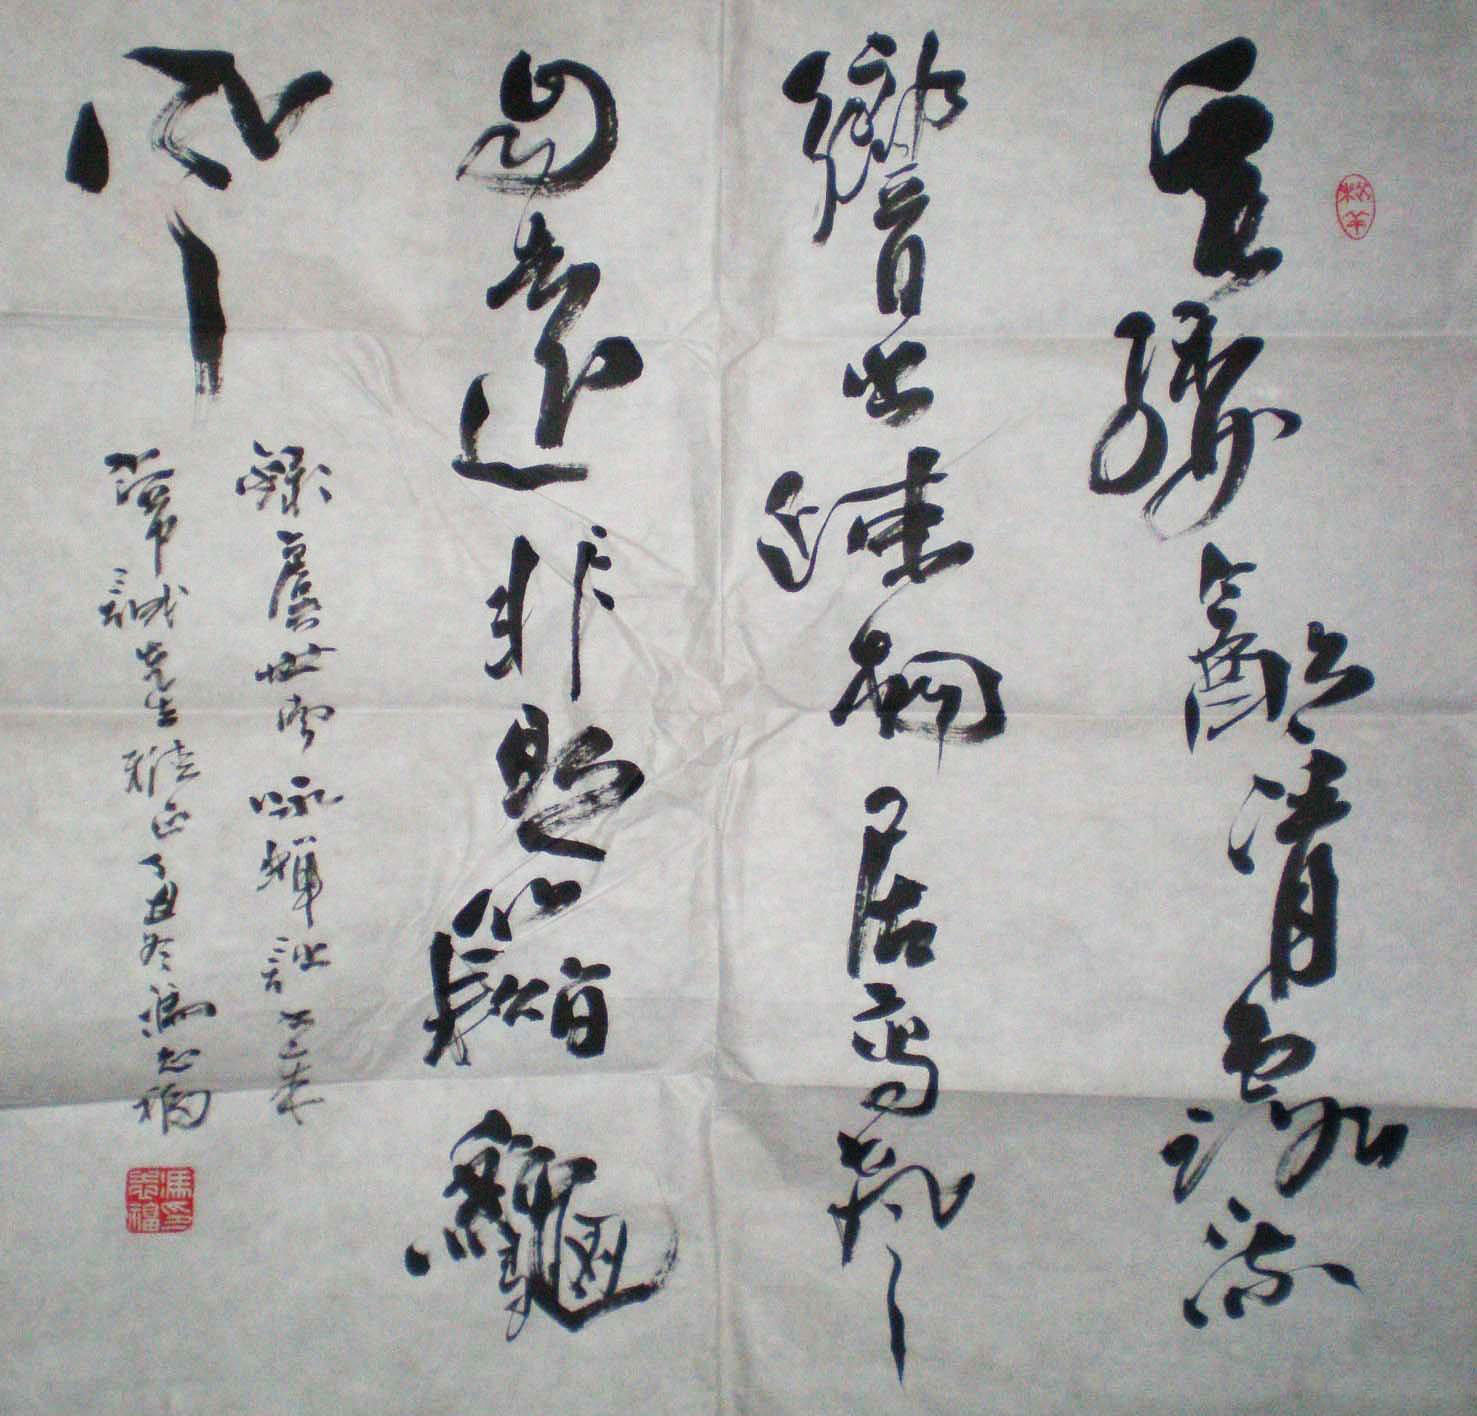 垂緌飲清露流
響出疏桐居高聲
自遠非是藉秋
風
錄虞世南咏蟬詩
常誠先生雅正丁丑冬馮